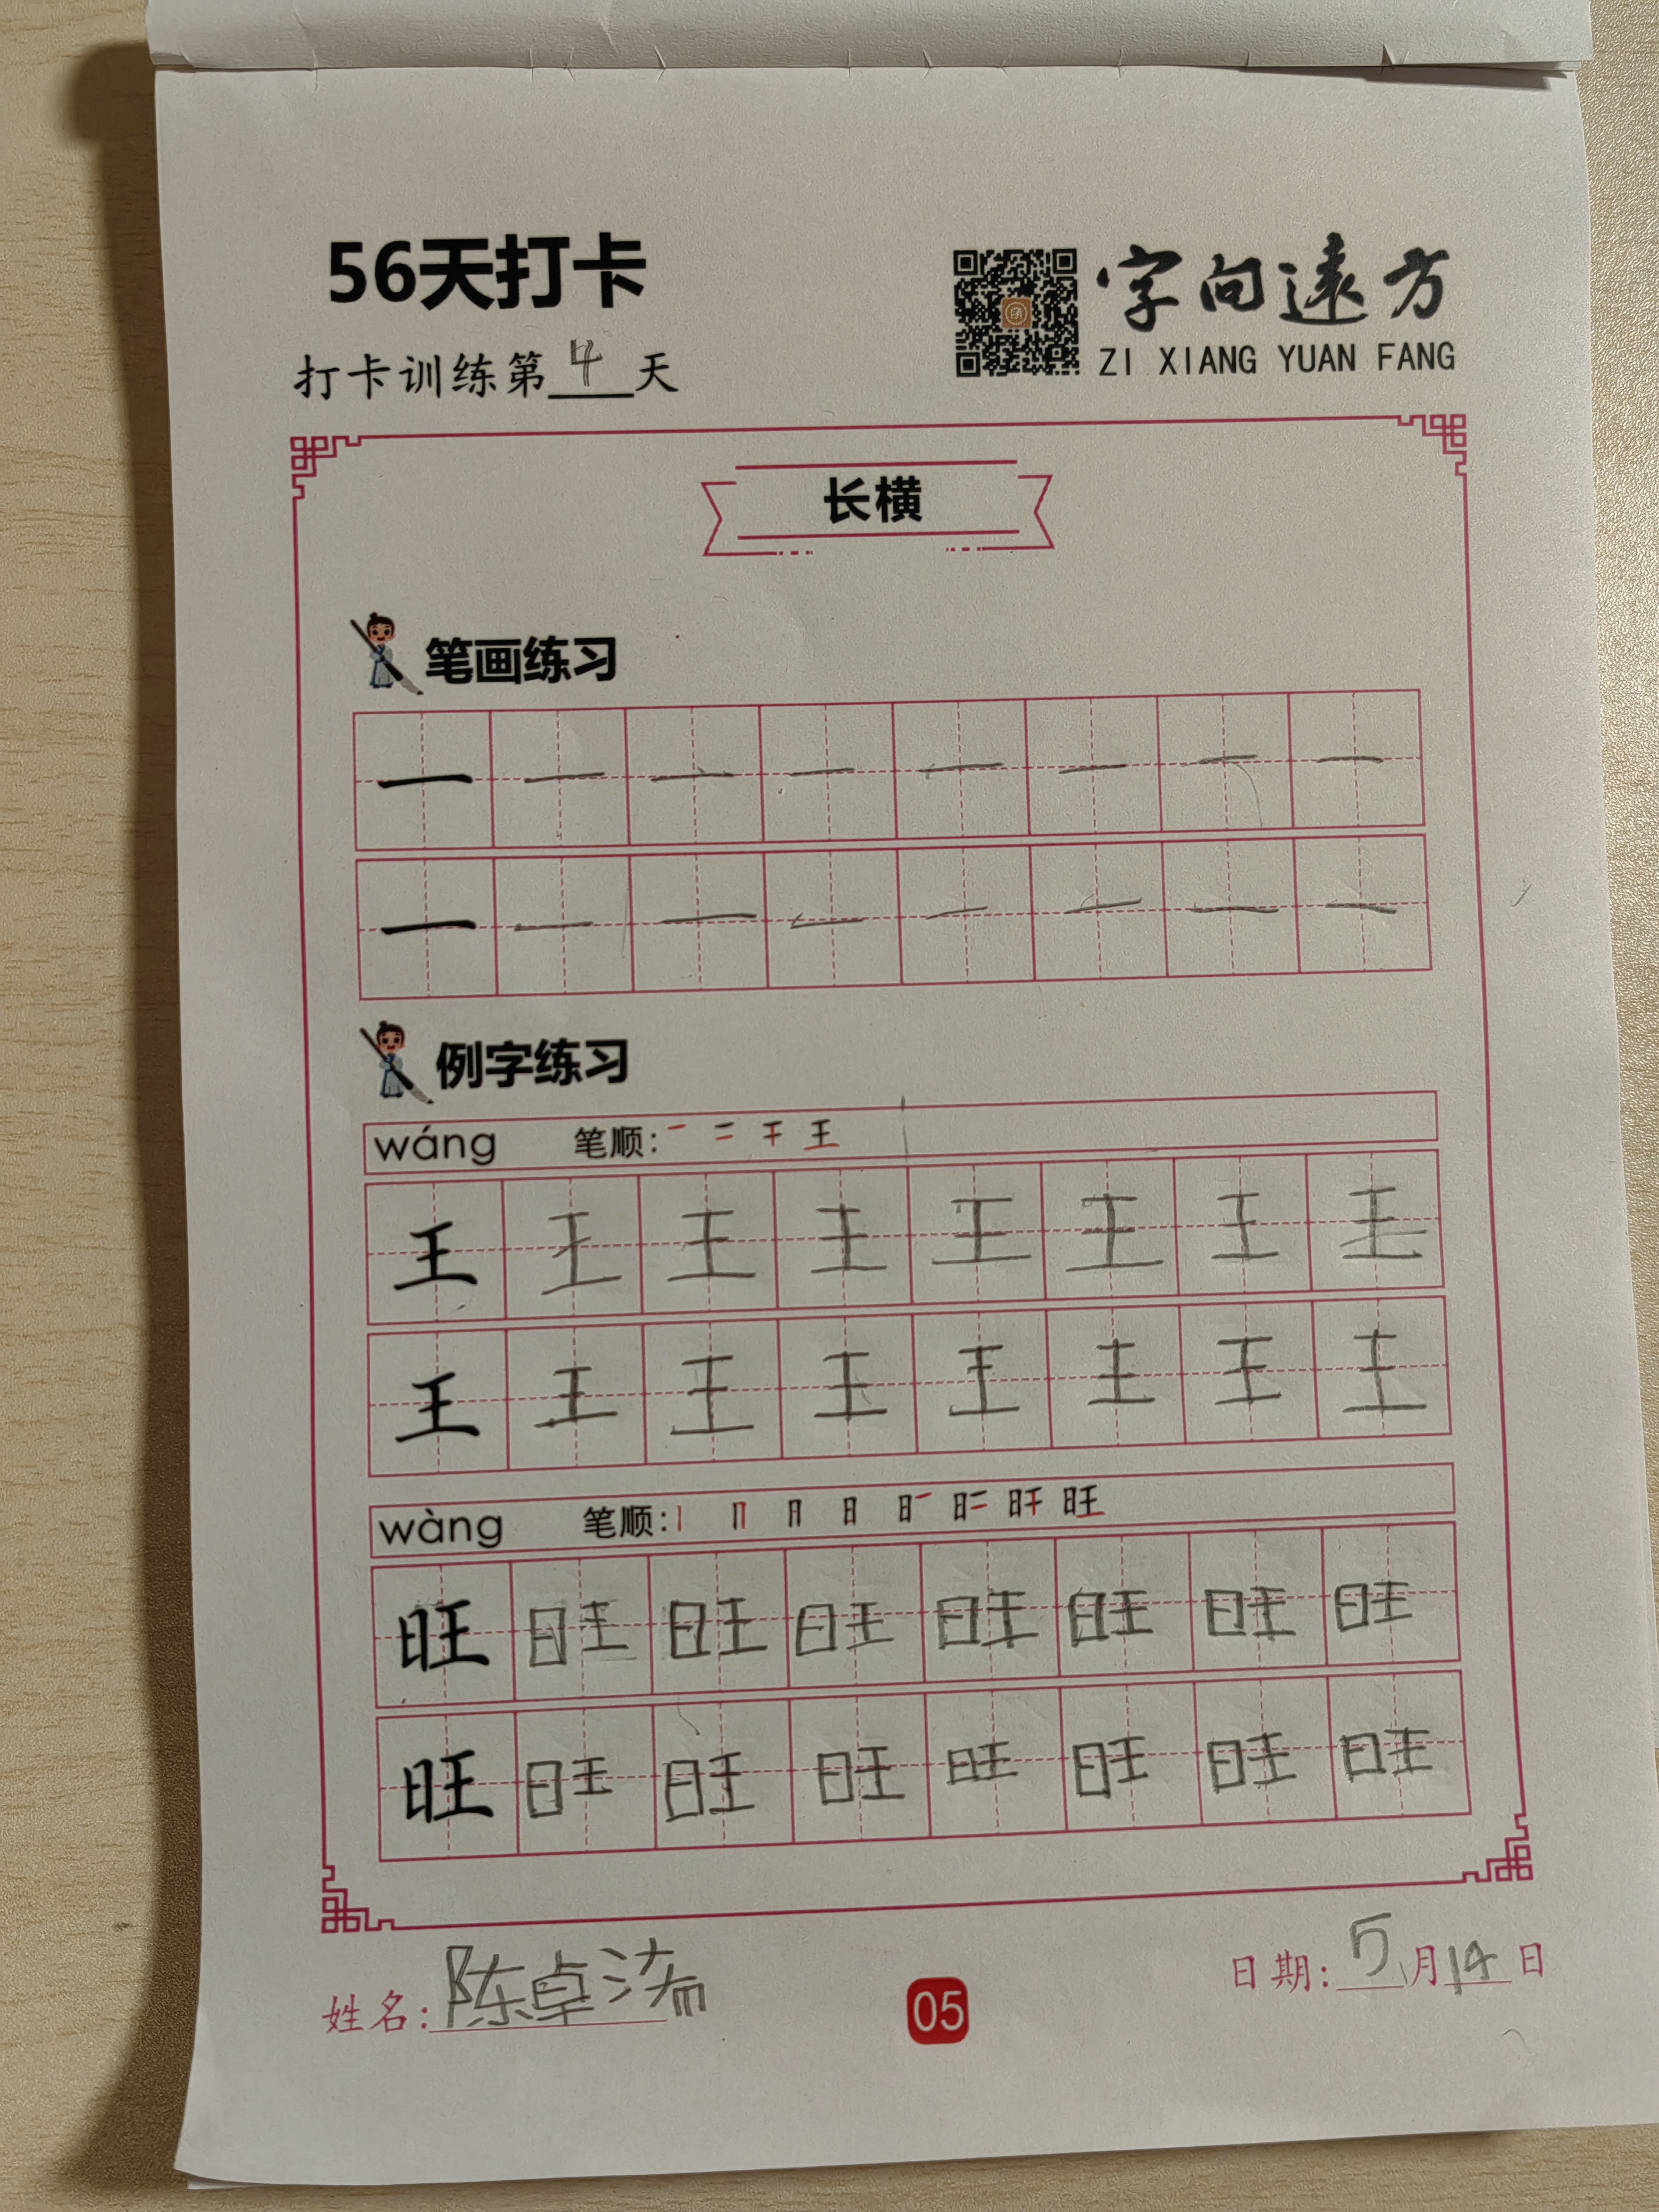 56天打卡
字向遠方
ZI XIANG YUAN FANG
打卡训练第4天
长横
笔画练习
一 一 一 一 一 一 一 一
一 一 一 一 一 一 一 一
例字练习
wáng 笔顺:
王 王 王 王 王 王 王 王
王 王 王 王 王 王 王 王
wàng 笔顺:
旺 旺 旺 旺 旺 旺 旺 旺
旺 旺 旺 旺 旺 旺 旺 旺
姓名:陈卓
05
日期:5月14日